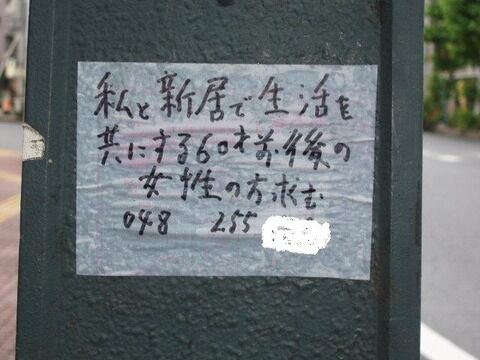 私と新居で生活を
共にする60才前後の
女性の方求む
048 255